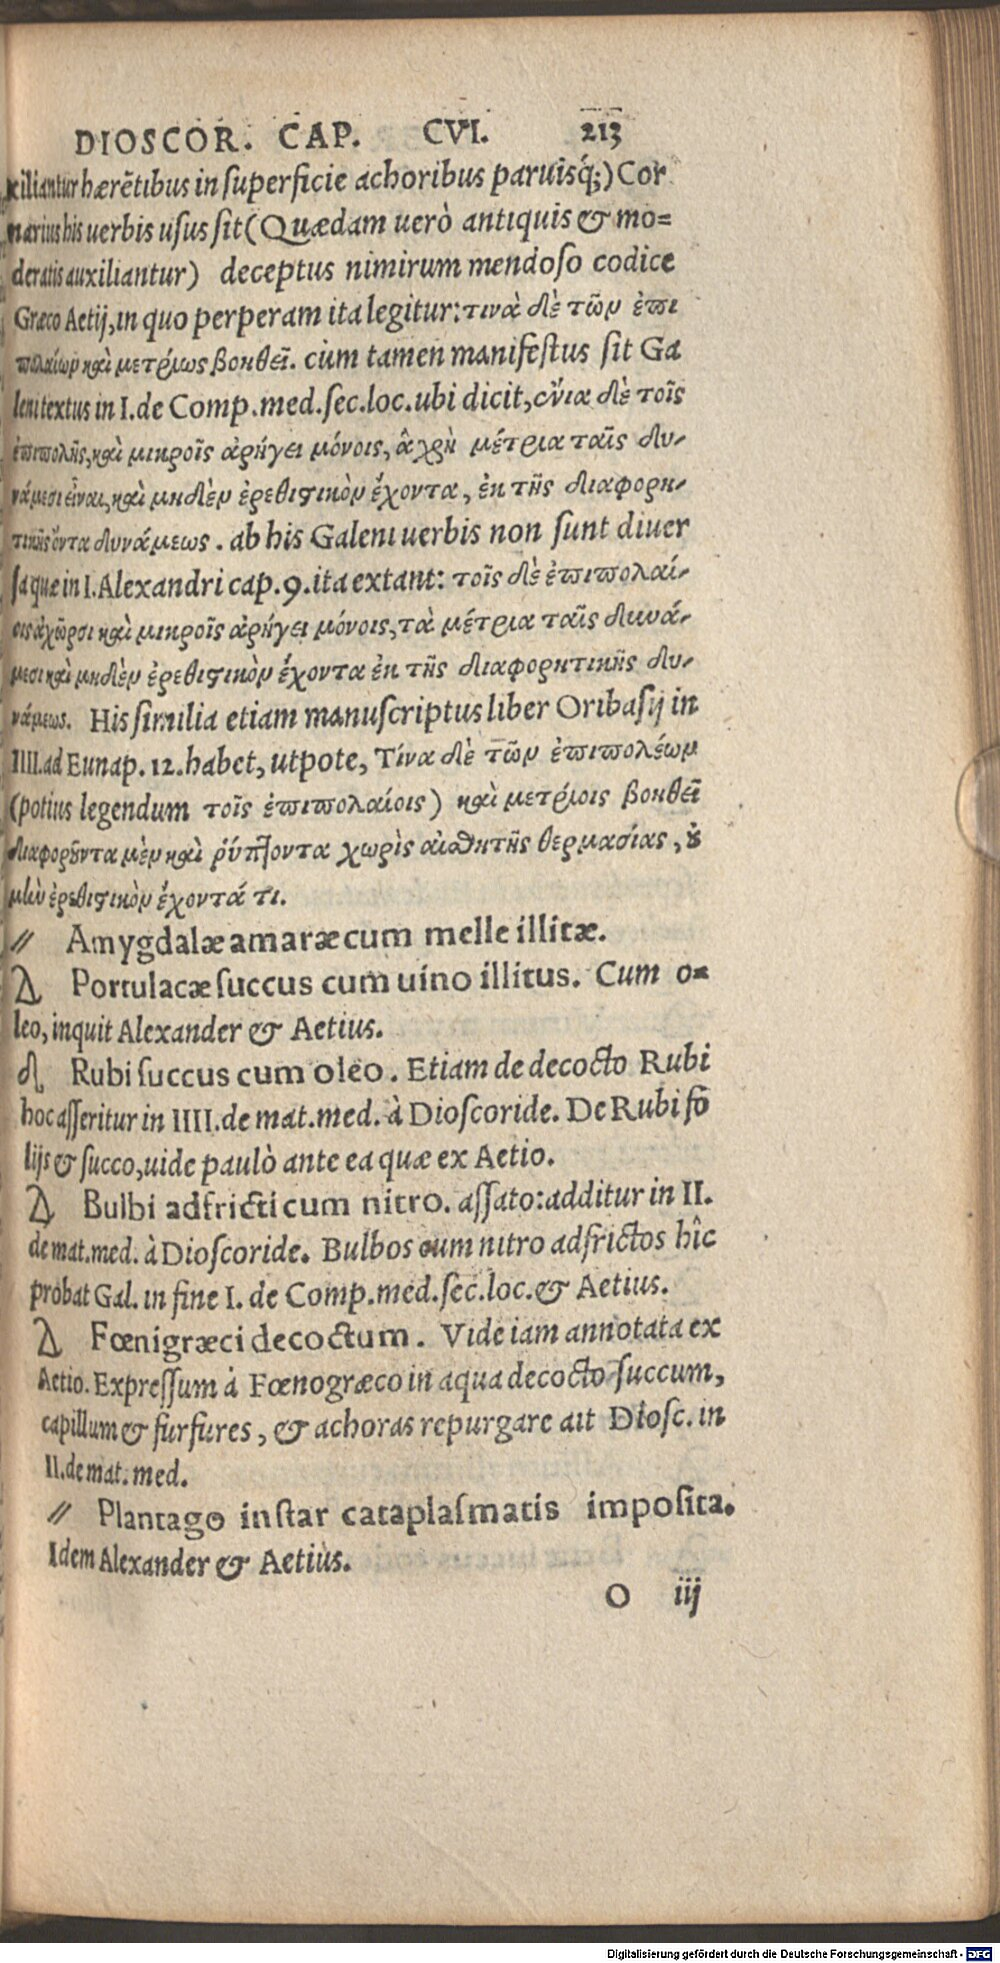 DIOSCOR. CAP. CVI. 213
xiliantur hærẽtibus in superficie achoribus paruisq́;) Cor
narius his uerbis usus sit (Quædam uerò antiquis & mo=
deratis auxiliantur) deceptus nimirum mendoso codice
Græco Aetij, in quo perperam ita legitur: τινὰ δὲ τῶν ἐπι
πολαίων καὶ μετρίως βοηθεῖ. cùm tamen manifestus sit Ga
leni textus in I. de Comp. med. sec. loc. ubi dicit, ἔνια δὲ τοῖς
ἐπιπολῆς, καὶ μικροῖς ἀρήγει μόνοις, ἃ χρὴ μέτρια ταῖς δυ-
νάμεσι εἶναι, καὶ μηδὲν ἐρεθιστικὸν ἔχοντα, ἐκ τῆς διαφορη-
τικῆς ὄντα δυνάμεως. ab his Galeni uerbis non sunt diuer
sa quæ in I. Alexandri cap. 9. ita extant: τοῖς δὲ ἐπιπολαί-
οις ἀχῶρσι καὶ μικροῖς ἀρήγει μόνοις, τὰ μέτρια ταῖς δυνά-
μεσι καὶ μηδὲν ἐρεθιστικὸν ἔχοντα ἐκ τῆς διαφορητικῆς δυ-
νάμεως. His similia etiam manuscriptus liber Oribasij in
IIII. ad Eunap. 12. habet, utpote, Τίνα δὲ τῶν ἐπιπολέων
(potius legendum τοῖς ἐπιπολαίοις) καὶ μετρίοις βοηθεῖ
διαφοροῦντα μὲν καὶ ῥύπτοντα χωρὶς αἰσθητῆς θερμασίας, οὐ
μὴν ἐρεθιστικὸν ἔχοντά τι.
// Amygdalæ amaræ cum melle illitæ.
Δ Portulacæ succus cum uino illitus. Cum o=
leo, inquit Alexander & Aetius.
δ Rubi succus cum oleo. Etiam de decocto Rubi
hoc asseritur in IIII. de mat. med. à Dioscoride. De Rubi fo
lijs & succo, uide paulò ante ea quæ ex Aetio.
Δ Bulbi adfricti cum nitro. assato: additur in II.
de mat. med. à Dioscoride. Bulbos cum nitro adfrictos hîc
probat Gal. in fine I. de Comp. med. sec. loc. & Aetius.
Δ Fœnigræci decoctum. Vide iam annotata ex
Aetio. Expressum à Fœnogræco in aqua decocto succum,
capillum & furfures, & achoras repurgare ait Diosc. in
II. de mat. med.
// Plantago instar cataplasmatis imposita.
Idem Alexander & Aetius.
O iij
Digitalisierung gefördert durch die Deutsche Forschungsgemeinschaft - DFG